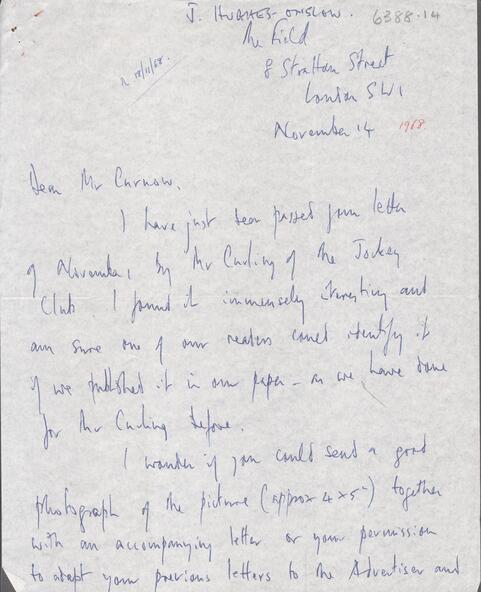 J. HUGHES-ONSLOW. 6388.14
The Field
8 Stratton Street
London SW1
R 18/11/68.
November 14 1968
Dear Mr Curnow,
I have just been passed your letter
of November 1 by Mr Curling of the Jockey
Club. I found it immensely interesting and
am sure one of our readers could identify it
if we published it in our paper - as we have done
for Mr Curling before.
I wonder if you could send a good
photograph of the picture (approx 4 x 5") together
with an accompanying letter or your permission
to adapt your previous letters to the Advertiser and